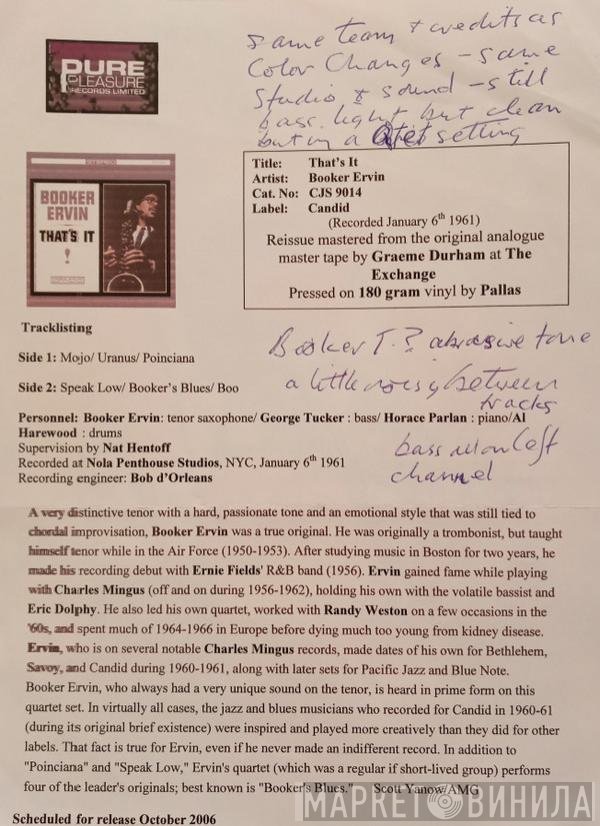 PURE
PLEASURE
RECORDS LIMITED
same team + credits as
Color Changes - same
Studio & sound - still
bass light but clean
but in a setting
BOOKER
ERVIN
THAT'S IT
!
Title: That's It
Artist: Booker Ervin
Cat. No: CJS 9014
Label: Candid
(Recorded January 6th 1961)
Reissue mastered from the original analogue
master tape by Graeme Durham at The
Exchange
Pressed on 180 gram vinyl by Pallas
Tracklisting
Side 1: Mojo/ Uranus/ Poinciana
Side 2: Speak Low/ Booker's Blues/ Boo
Booker T.? abrasive tone
a little noisy between
tracks
bass all on left
channel
Personnel: Booker Ervin: tenor saxophone/ George Tucker : bass/ Horace Parlan : piano/Al
Harewood : drums
Supervision by Nat Hentoff
Recorded at Nola Penthouse Studios, NYC, January 6th 1961
Recording engineer: Bob d'Orleans
A very distinctive tenor with a hard, passionate tone and an emotional style that was still tied to
chordal improvisation, Booker Ervin was a true original. He was originally a trombonist, but taught
himself tenor while in the Air Force (1950-1953). After studying music in Boston for two years, he
made his recording debut with Ernie Fields' R&B band (1956). Ervin gained fame while playing
with Charles Mingus (off and on during 1956-1962), holding his own with the volatile bassist and
Eric Dolphy. He also led his own quartet, worked with Randy Weston on a few occasions in the
'60s, and spent much of 1964-1966 in Europe before dying much too young from kidney disease.
Ervin, who is on several notable Charles Mingus records, made dates of his own for Bethlehem,
Savoy, and Candid during 1960-1961, along with later sets for Pacific Jazz and Blue Note.
Booker Ervin, who always had a very unique sound on the tenor, is heard in prime form on this
quartet set. In virtually all cases, the jazz and blues musicians who recorded for Candid in 1960-61
(during its original brief existence) were inspired and played more creatively than they did for other
labels. That fact is true for Ervin, even if he never made an indifferent record. In addition to
"Poinciana" and "Speak Low," Ervin's quartet (which was a regular if short-lived group) performs
four of the leader's originals; best known is "Booker's Blues." Scott Yanow/AMG
Scheduled for release October 2006
МАРКЕТ ВИНИЛА